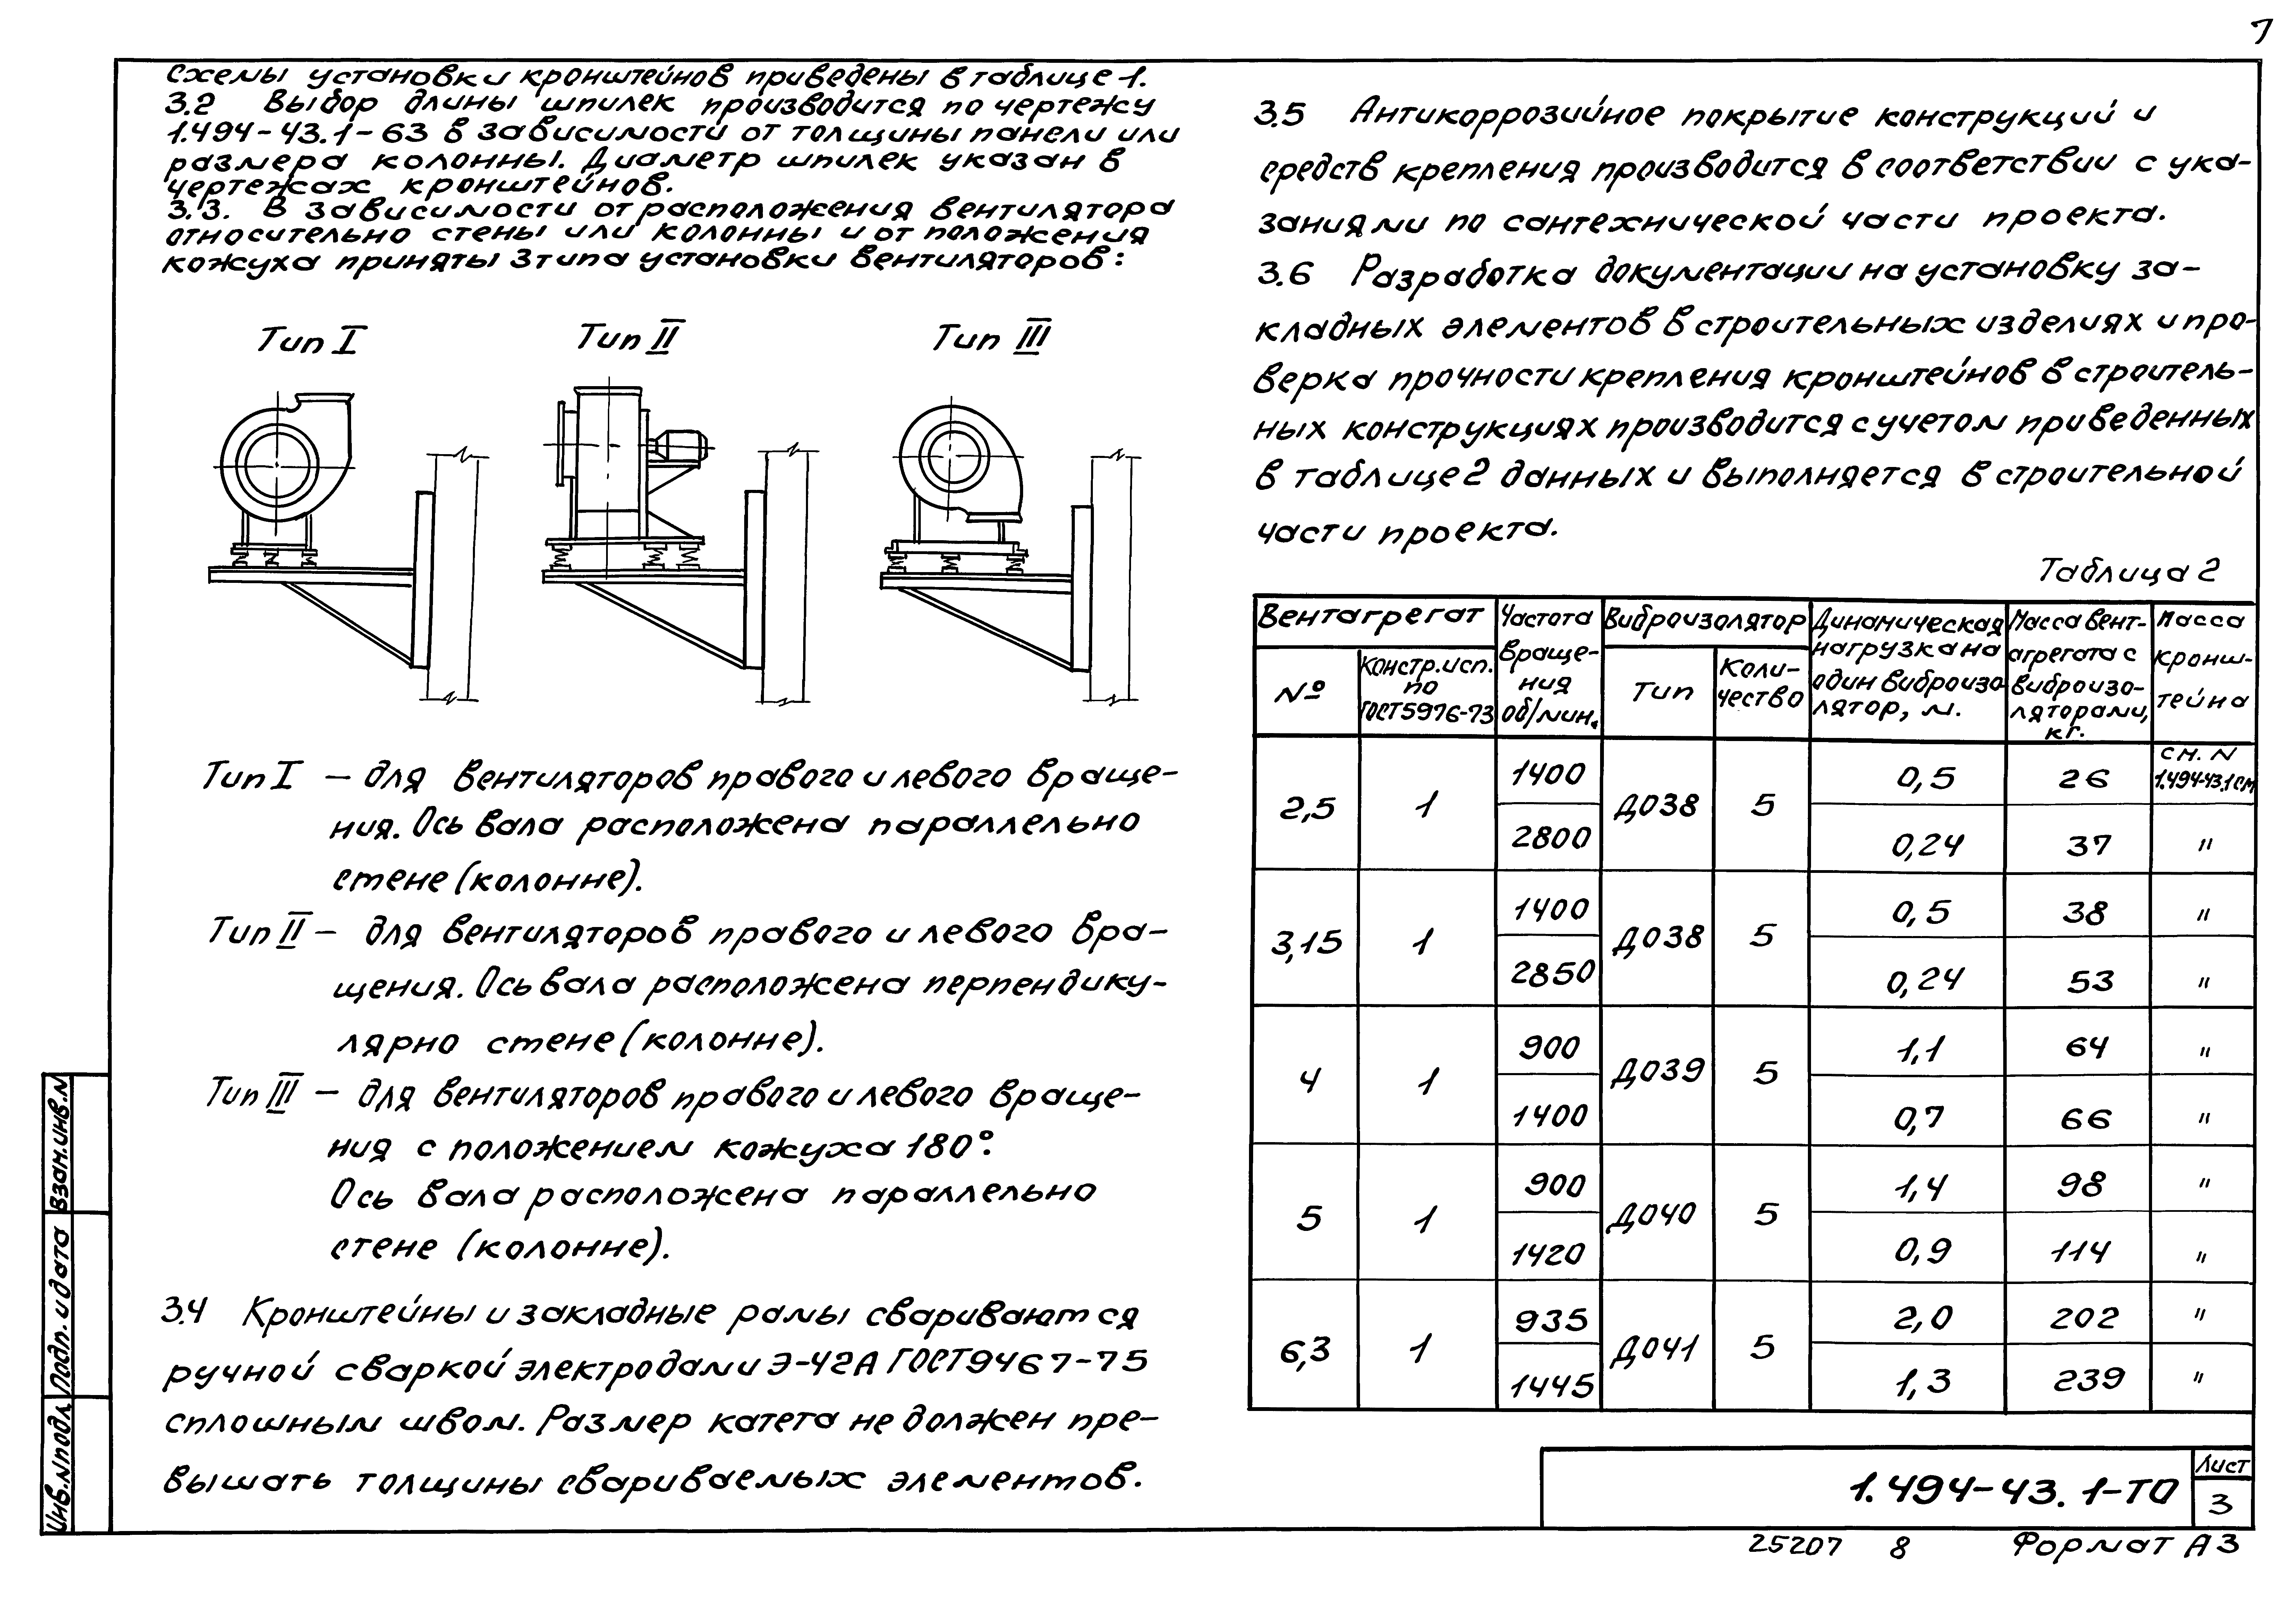 7
схемы установки кронштейнов приведены в таблице 1.
3.2 Выбор длины шпилек производится по чертежу
1.494-43.1-63 в зависимости от толщины панели или
размера колонны. Диаметр шпилек указан в
чертежах кронштейнов.
3.3. В зависимости от расположения вентилятора
относительно стены или колонны и от положения
кожуха приняты 3 типа установки вентиляторов:
Тип I Тип II Тип III
Тип I – для вентиляторов правого и левого враще-
ния. Ось вала расположена параллельно
стене (колонне).
Тип II – для вентиляторов правого и левого вра-
щения. Ось вала расположена перпендику-
лярно стене (колонне).
Тип III – для вентиляторов правого и левого враще-
ния с положением кожуха 180°.
Ось вала расположена параллельно
стене (колонне).
3.4 Кронштейны и закладные рамы свариваются
ручной сваркой электродами Э-42А ГОСТ 9467-75
сплошным швом. Размер катета не должен пре-
вышать толщины свариваемых элементов.
3.5 Антикоррозийное покрытие конструкций и
средств крепления производится в соответствии с ука-
заниями по сантехнической части проекта.
3.6 Разработка документации на установку за-
кладных элементов в строительных изделиях и про-
верка прочности крепления кронштейнов в строитель-
ных конструкциях производится с учетом приведенных
в таблице 2 данных и выполняется в строительной
части проекта.
Таблица 2
Вентагрегат Частота враще-ния об/мин. Виброизолятор Динамическая нагрузка на один виброизо лятор, м. Масса вент-агрегата с виброизо-ляторами, кг. Масса кронш-тейна
№ Констр. исп. по ГОСТ 5976-73 Тип Коли-чество
2,5 1 1400 Д038 5 0,5 26 см. N 1.494-43.1 см
2800 0,24 37 "
3,15 1 1400 Д038 5 0,5 38 "
2850 0,24 53 "
4 1 900 Д039 5 1,1 64 "
1400 0,7 66 "
5 1 900 Д040 5 1,4 98 "
1420 0,9 114 "
6,3 1 935 Д041 5 2,0 202 "
1445 1,3 239 "
Взам. инв. N
Подп. и дата
Инв. N подл.
1.494-43. 1-ТО
Лист
3
25207 8 Формат А3